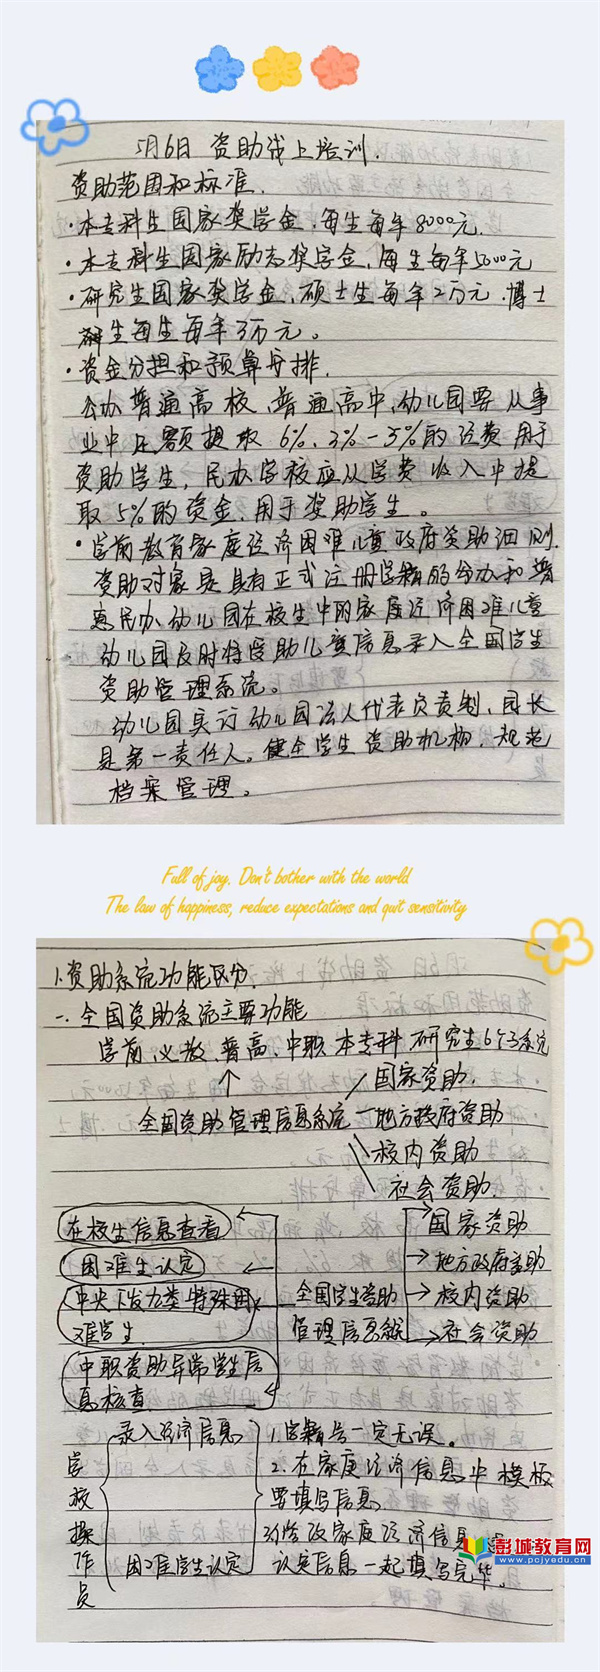 5月6日 资助线上培训.
资助范围和标准.
·本专科生国家奖学金,每生每年8000元.
·本专科生国家励志奖学金,每生每年5000元
·研究生国家奖学金,硕士生每年2万元.博士
生每生每年3万元。
·资金分担和预算安排.
公办普通高校、普通高中、幼儿园要从事
业中足额提取6%、3%-5%的经费用于
资助学生,民办学校应从学费收入中提
取5%的资金,用于奖助学生。
·学前教育家庭经济困难儿童政府资助细则.
资助对象是具有正式注册学籍的公办和普
惠民办幼儿园在校生中的家庭经济困难儿童
幼儿园及时将受助儿童信息录入全国学生
资助管理系统。
幼儿园实行幼儿园法人代表负责制,园长
是第一责任人。健全学生资助机构,规范
档案管理。
Full of joy. Don't bother with the world
The law of happiness, reduce expectations and quit sensitivity
1.资助系统功能区分.
一.全国资助系统主要功能
学前、义教、普高、中职 本专科 研究生6个子系统
国家资助.
全国资助管理信息系统 地方政府资助
校内资助
社会资助.
在校生信息查看
困难生认定
中央下发九类特殊困
难学生.
中职资助异常学生信
息核查.
全国学生资助
管理信息系统
国家资助
地方政府资助
校内资助
社会资助
学校操作员
录入经济信息
困难学生认定
1.学籍号一定无误。
2.在家庭经济信息中模板
要填写信息
3.修改家庭经济信息
认定信息一起填写完毕。
彭城教育网
www.pcjyedu.cn